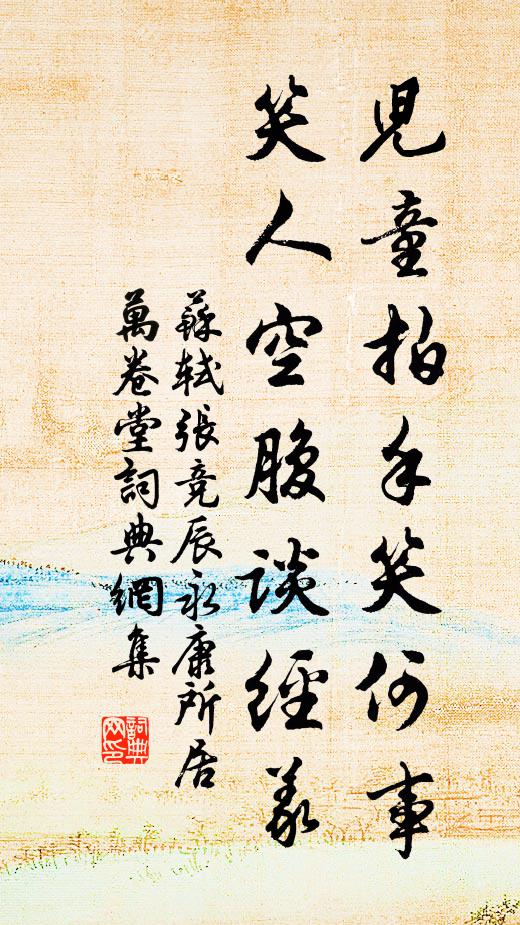 兒童拍手笑何事
笑人空腹談經義
蘇軾張競辰永康所居
萬卷堂詞典網集
詞典
网印